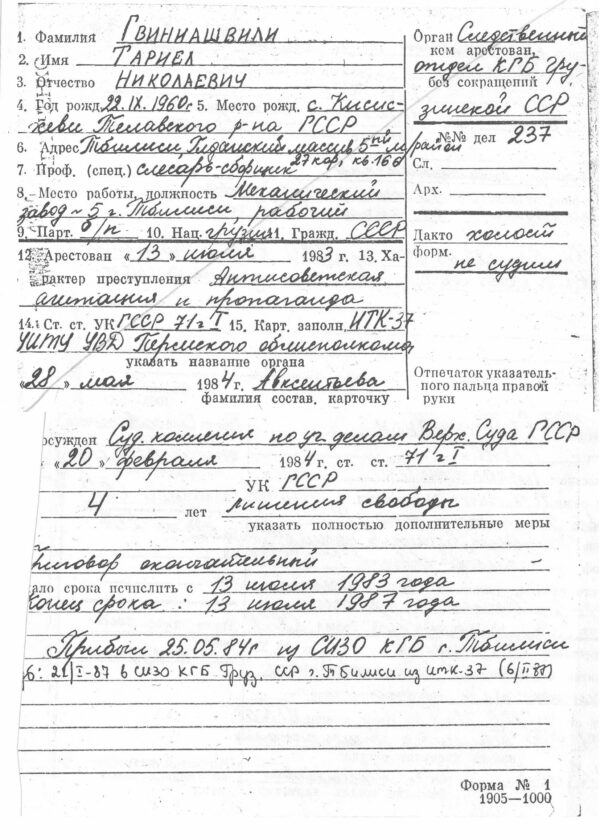 1. Фамилия ГВИНИАШВИЛИ
2. Имя ТАРИЕЛ
3. Отчество НИКОЛАЕВИЧ
4. Год рожд. 22.IX.1960г. 5. Место рожд. с. Кисис-
хеви Телавского р-на ГССР
6. Адрес Тбилиси Глданский массив 5ый м/район
27 кор., кв. 166
7. Проф. (спец.) слесарь-сборщик
8. Место работы, должность Механический
завод-5 г. Тбилиси рабочий
9. Парт. б/п 10. Нац. грузин 11. Гражд. СССР
12. Арестован «13» июля 1983 г. 13. Ха-
рактер преступления Антисоветская
агитация и пропаганда
14. Ст. ст. УК ГССР 71 ч I 15. Карт. заполн. ИТК-37
УИТУ УВД Пермского облисполкома,
указать название органа
«28» мая 1984 г. Авксентьева
фамилия состав. карточку
Орган Следственный
кем арестован,
отдел КГБ Гру-
без сокращений
зинской ССР
№№ дел 237
Сл.
Арх.
Дакто холост
форм.
не судим
Отпечаток указатель-
ного пальца правой
руки
осужден Суд. коллегия по уг. делам Верх. Суда ГССР
«20» февраля 1984 г. ст. ст. 71 ч I
УК ГССР
4 лет лишения свободы
указать полностью дополнительные меры
Приговор окончательный
ало срока исчислить с 13 июля 1983 года
Конец срока: 13 июля 1987 года
Прибыл 25.05.84г из СИЗО КГБ г. Тбилиси
в СИЗО КГБ Груз. ССР г. Тбилиси из ИТК-37
Форма № 1
1905—1000